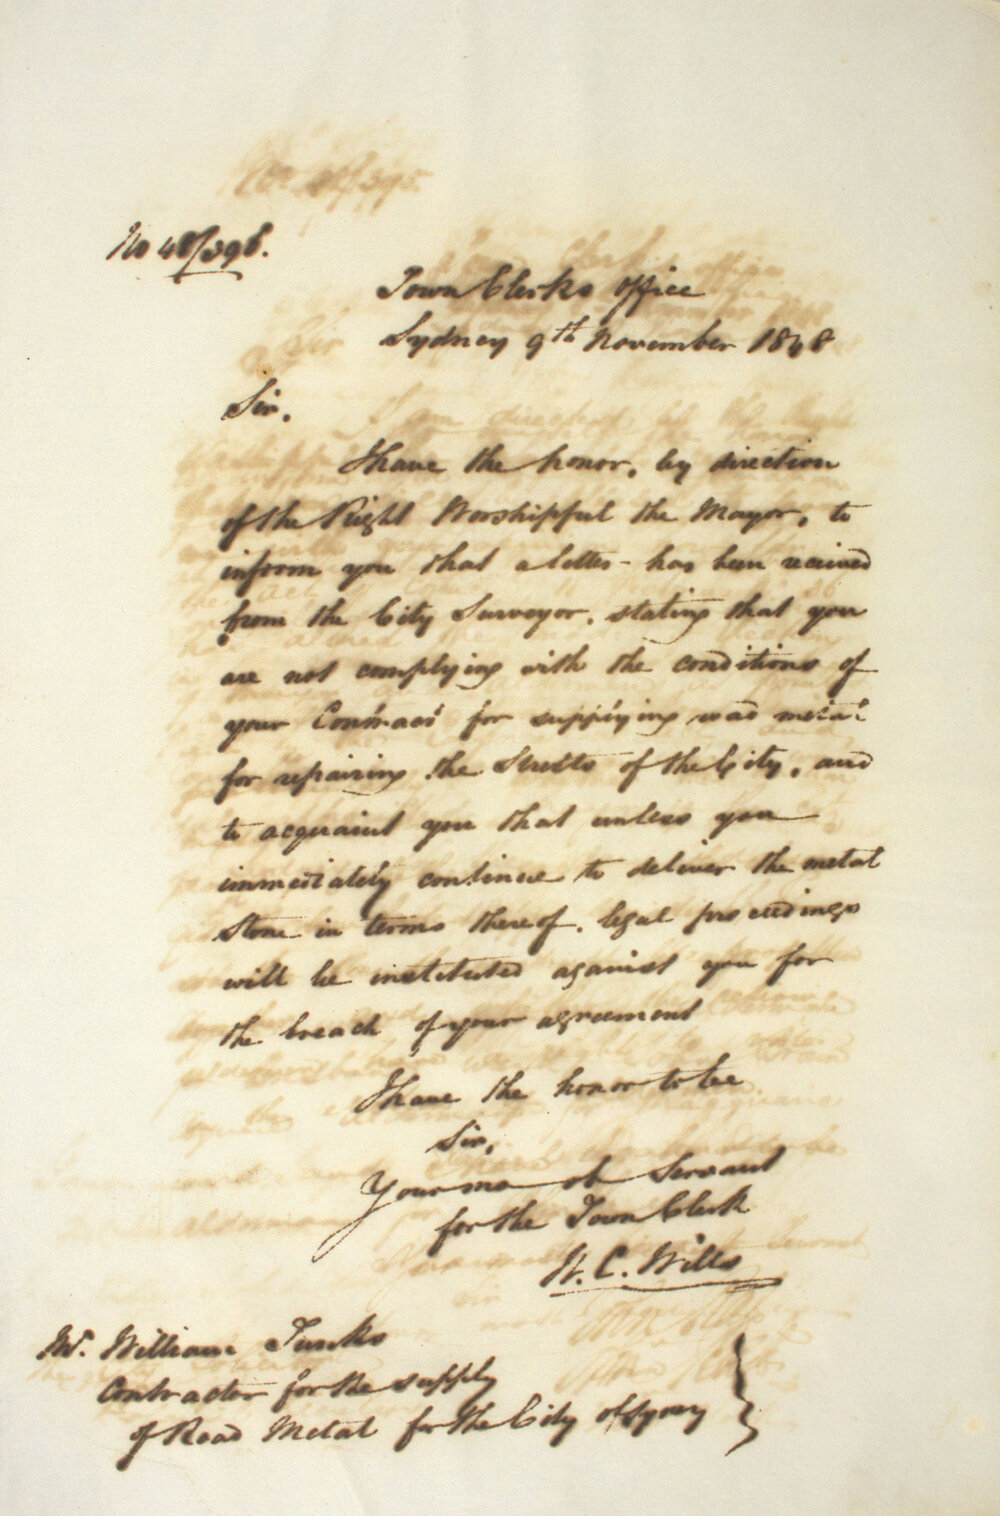 No 48/398.
Town Clerks office
Sydney 9th November 1848
Sir,
I have the honor, by direction
of the Right Worshipful the Mayor, to
inform you that a letter has been received
from the City Surveyor, stating that you
are not complying with the conditions of
your Contract for supplying road metal
for repairing the Streets of the City, and
to acquaint you that unless you
immediately continue to deliver the metal
Stone in terms thereof, legal proceedings
will be instituted against you for
the breach of your agreement
I have the honor to be
Sir,
Your mo ob Servant
for the Town Clerk
W. C. Wills
Mr. William Tunks
Contractor for the supply
of Road Metal for the City of Sydney